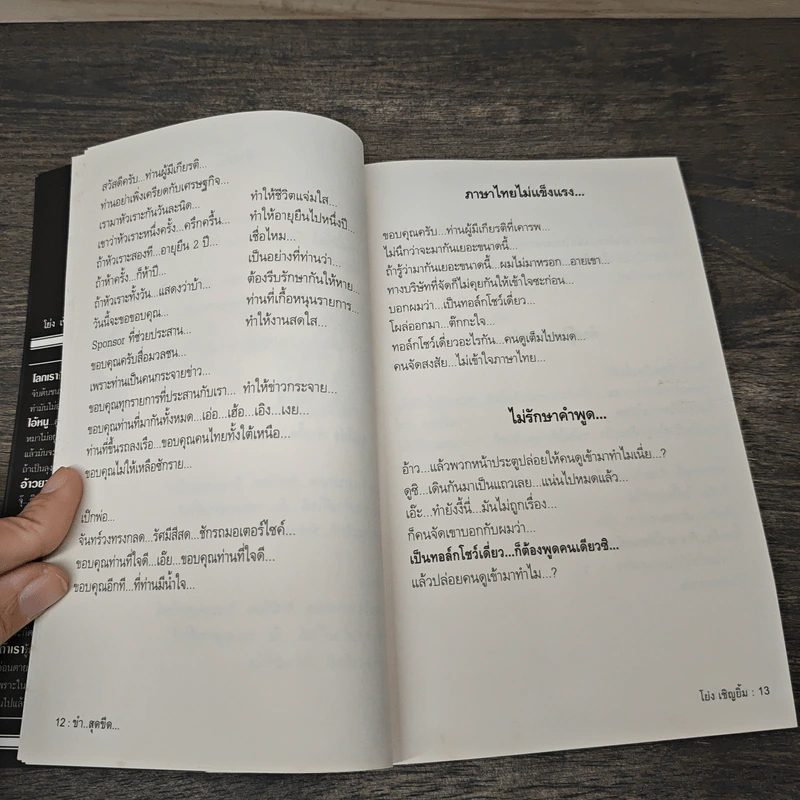 สวัสดีครับ...ท่านผู้มีเกียรติ...
ท่านอย่าเพิ่งเครียดกับเศรษฐกิจ...
เรามาหัวเราะกันวันละนิด... ทำให้ชีวิตแจ่มใส...
เขาว่าหัวเราะหนึ่งครั้ง...ครึกครื้น... ทำให้อายุยืนไปหนึ่งปี...
ถ้าหัวเราะสองที...อายุยืน 2 ปี... เชื่อไหม...
ถ้าห้าครั้ง...ก็ห้าปี... เป็นอย่างที่ท่านว่า...
ถ้าหัวเราะทั้งวัน...แสดงว่าบ้า... ต้องรีบรักษากันให้หาย...
วันนี้จะขอขอบคุณ... ท่านที่เกื้อหนุนรายการ...
Sponsor ที่ช่วยประสาน... ทำให้งานสดใส...
ขอบคุณครับสื่อมวลชน...
เพราะท่านเป็นคนกระจายข่าว...
ขอบคุณทุกรายการที่ประสานกับเรา... ทำให้ข่าวกระจาย...
ขอบคุณท่านที่มากันทั้งหมด...เอ่อ...เฮ้อ...เอิง...เงย...
ท่านที่ขึ้นรถลงเรือ...ขอบคุณคนไทยทั้งใต้เหนือ...
ขอบคุณไม่ให้เหลือซักราย...
เป๊กพ่อ...
จันทร์วงทรงกลด...รัศมีสีสด...ชักรถมอเตอร์ไซค์...
ขอบคุณท่านที่ใจดี...เอ๊ย...ขอบคุณท่านที่ใจดี...
ขอบคุณอีกที...ที่ท่านมีน้ำใจ...
12 : ขำ..สุดขีด...
ภาษาไทยไม่แข็งแรง...
ขอบคุณครับ...ท่านผู้มีเกียรติที่เคารพ...
ไม่นึกว่าจะมากันเยอะขนาดนี้...
ถ้ารู้ว่ามากันเยอะขนาดนี้...ผมไม่มาหรอก...อายเขา...
ทางบริษัทที่จัดก็ไม่คุยกันให้เข้าใจซะก่อน...
บอกผมว่า...เป็นทอล์กโชว์เดี่ยว...
โผล่ออกมา...ตึ๊กกะใจ...
ทอล์กโชว์เดี่ยวอะไรกัน...คนดูเต็มไปหมด...
คนจัดสงสัย...ไม่เข้าใจภาษาไทย...
ไม่รักษาคำพูด...
อ้าว...แล้วพวกหน้าประตูปล่อยให้คนดูเข้ามาทำไมเนี่ย...?
ดูซิ...เดินกันมาเป็นแถวเลย...แน่นไปหมดแล้ว...
เอ๊ะ...ทำยังงี้นี่...มันไม่ถูกเรื่อง...
ก็คนจัดเขาบอกกับผมว่า...
เป็นทอล์กโชว์เดี่ยว...ก็ต้องพูดคนเดียวซิ...
แล้วปล่อยคนดูเข้ามาทำไม...?
โย่ง เชิญยิ้ม : 13